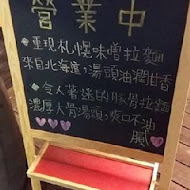 營業中
◆重現札幌味噌拉麵
來自北海道,湯頭油潤甘香
◆令人著迷的豚骨拉麵
濃厚大骨湯頭,爽口不油
膩